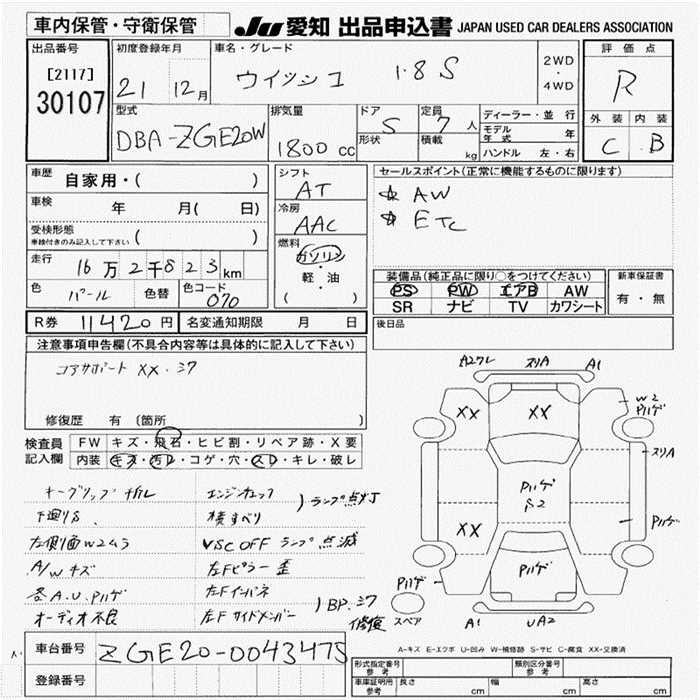 車内保管・守衛保管
JU 愛知 出品申込書 JAPAN USED CAR DEALERS ASSOCIATION
出品番号
[2117]
30107
初度登録年月
21 12月
車名・グレード
ウイッシュ 1.8 S
2WD
・
4WD
評価点
R
外装 内装
C B
型式
DBA-ZGE20W
排気量
1800 cc
ドア
5
形状
定員
7 人
積載
kg
ディーラー・並行
モデル年式 年
ハンドル 左・右
車歴
自家用・( )
車検
年 月( 日)
受検形態
車検付きのみ記入して下さい ( )
走行
16万2千823km
色
パール
色替
色コード
070
シフト
AT
冷房
AAC
燃料
ガソリン
・
軽・油
( )
セールスポイント(正常に機能するものに限ります)
☆ AW
☆ ETC
装備品(純正品に限り○をつけてください)
PS PW エアB AW
SR ナビ TV カワシート
新車保証書
有・無
R券 11420円
名変通知期限 月 日
後日品
注意事項申告欄(不具合内容等は具体的に記入して下さい)
コアサポート XX・ミワ
修復歴 有 (箇所 )
検査員
記入欄
FW キズ・飛石・ヒビ割・リペア跡・X要
内装 キズ・汚レ・コゲ・穴・スレ・キレ・破レ
キーグリップ チガレ
エンジンチェック
) ランプ点灯
下廻りS
横すべり
左側面W2ムラ
VSC OFF ランプ点滅
A/W キズ
左Fピラー歪
各A.U.Pハゲ
左Fインパネ
オーディオ不良
左Fサイドメンバー
) BP.ミワ
修復
A2ワレ スリA A1
XX
XX
W2
Pハゲ
スリA
Pハゲ
S2
XX
Pハゲ
Pハゲ
Pハゲ
スペア
A1 UA2
A-キズ E-エクボ U-凹み W-補修跡 S-サビ C-腐食 XX-交換済
車台番号
ZGE20-0043475
登録番号
形式指定番号
参考
類別区分番号
参考
車庫証明用
参考
長さ cm
幅 cm
高さ cm